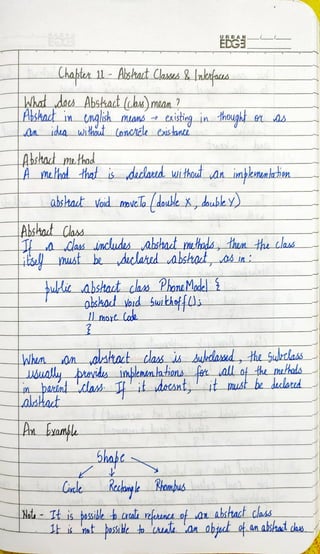 URBAN
EDGE
Chapter 11 - Abstract Classes & Interfaces
What does Abstract (class) mean ?
Abstract in english means → existing in thought or as
an idea without concrete existance
Abstract method
A method that is declared without an implementation
abstract void moveTo (double X, double Y)
Abstract Class
If a class includes abstract methods, then the class
itself must be declared abstract, as in :
public abstract class PhoneModel {
abstract void switchoff();
// more Code
}
When an abstract class is subclassed, the subclass
usually provides implementations for all of the methods
in parent class. If it doesnt, it must be declared
abstract
An Example
Shape
Circle Rectangle Rhombus
Note - It is possible to create reference of an abstract class
It is not possible to create an object of an abstract class